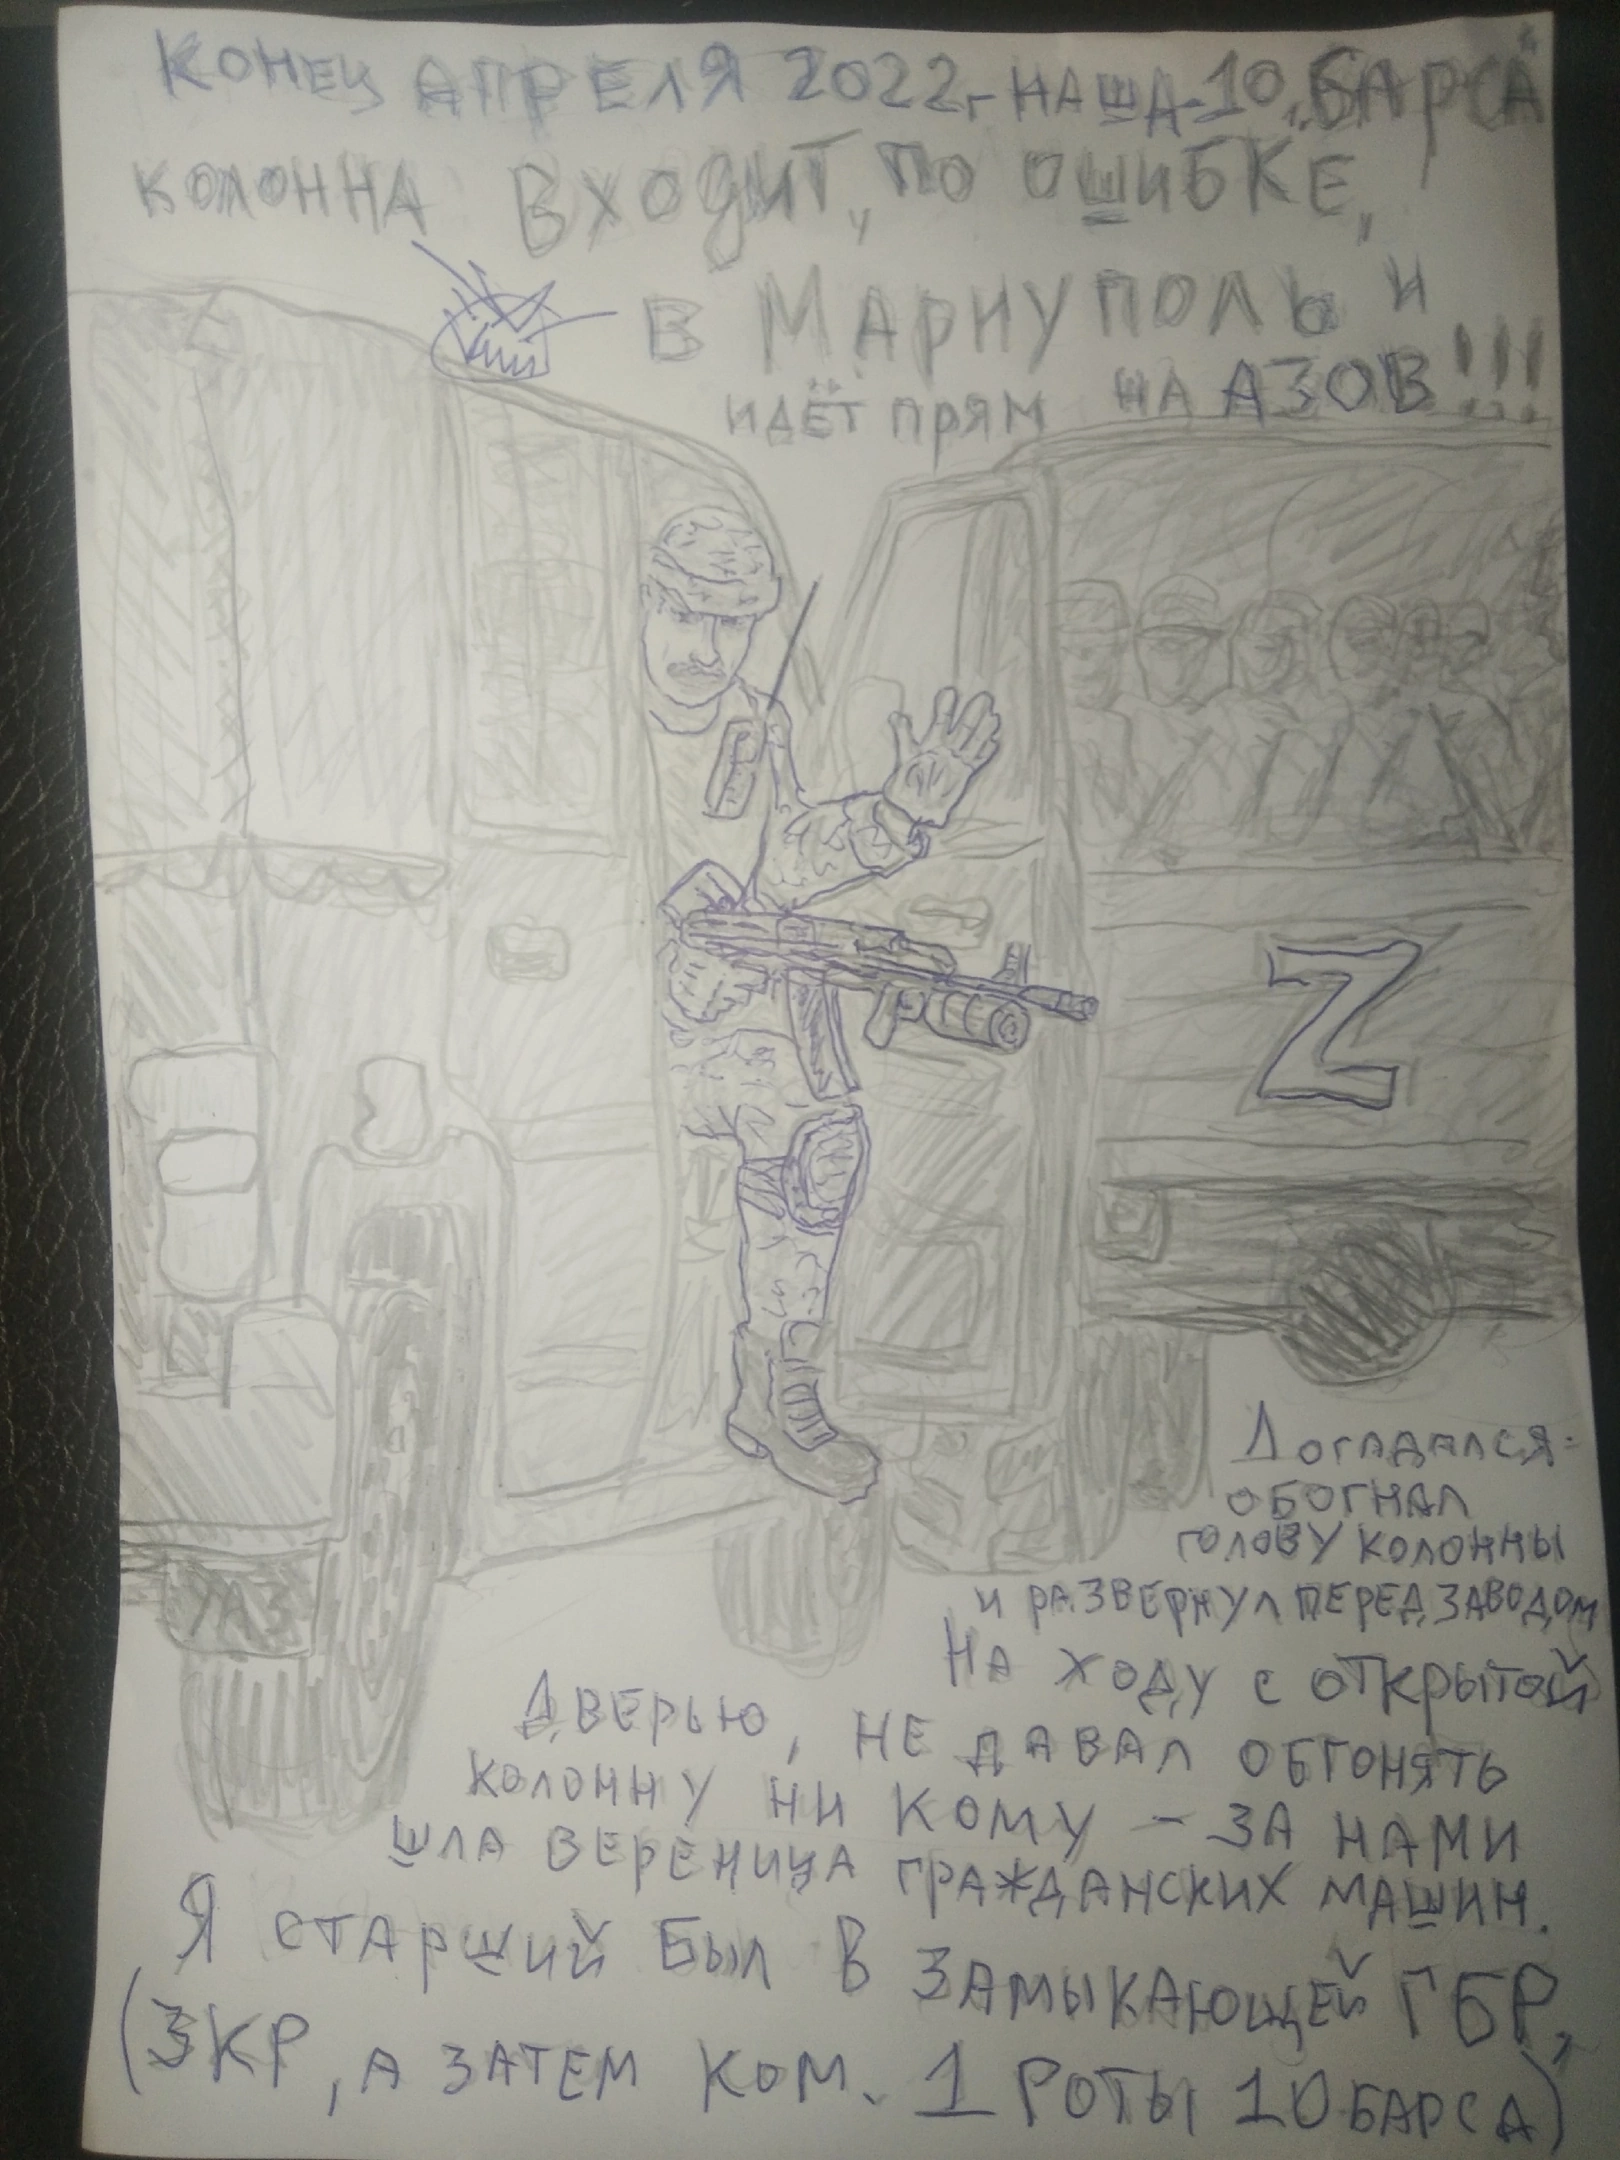 КОНЕЦ АПРЕЛЯ 2022г НАША-10 „БАРСА"
КОЛОННА ВХОДИТ „ПО ОШИБКЕ„
В МАРИУПОЛЬ И
ИДЁТ ПРЯМ НА АЗОВ!!!
Z
УАЗ
ДОГАДАЛСЯ:
ОБОГНАЛ
ГОЛОВУ КОЛОННЫ
И РАЗВЕРНУЛ ПЕРЕД ЗАВОДОМ
НА ХОДУ С ОТКРЫТОЙ
ДВЕРЬЮ, НЕ ДАВАЛ ОБГОНЯТЬ
КОЛОННУ НИ КОМУ - ЗА НАМИ
ШЛА ВЕРЕНИЦА ГРАЖДАНСКИХ МАШИН.
Я СТАРШИЙ БЫЛ В ЗАМЫКАЮЩЕЙ ГБР,
(ЗКР, А ЗАТЕМ КОМ. 1 РОТЫ 10 БАРСА)